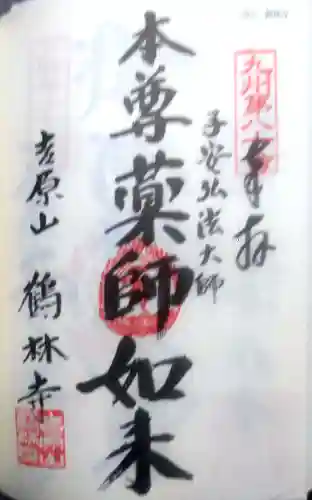 九州第八十番
奉拝
子安弘法大師
本尊薬師如来
吉原山 鶴林寺